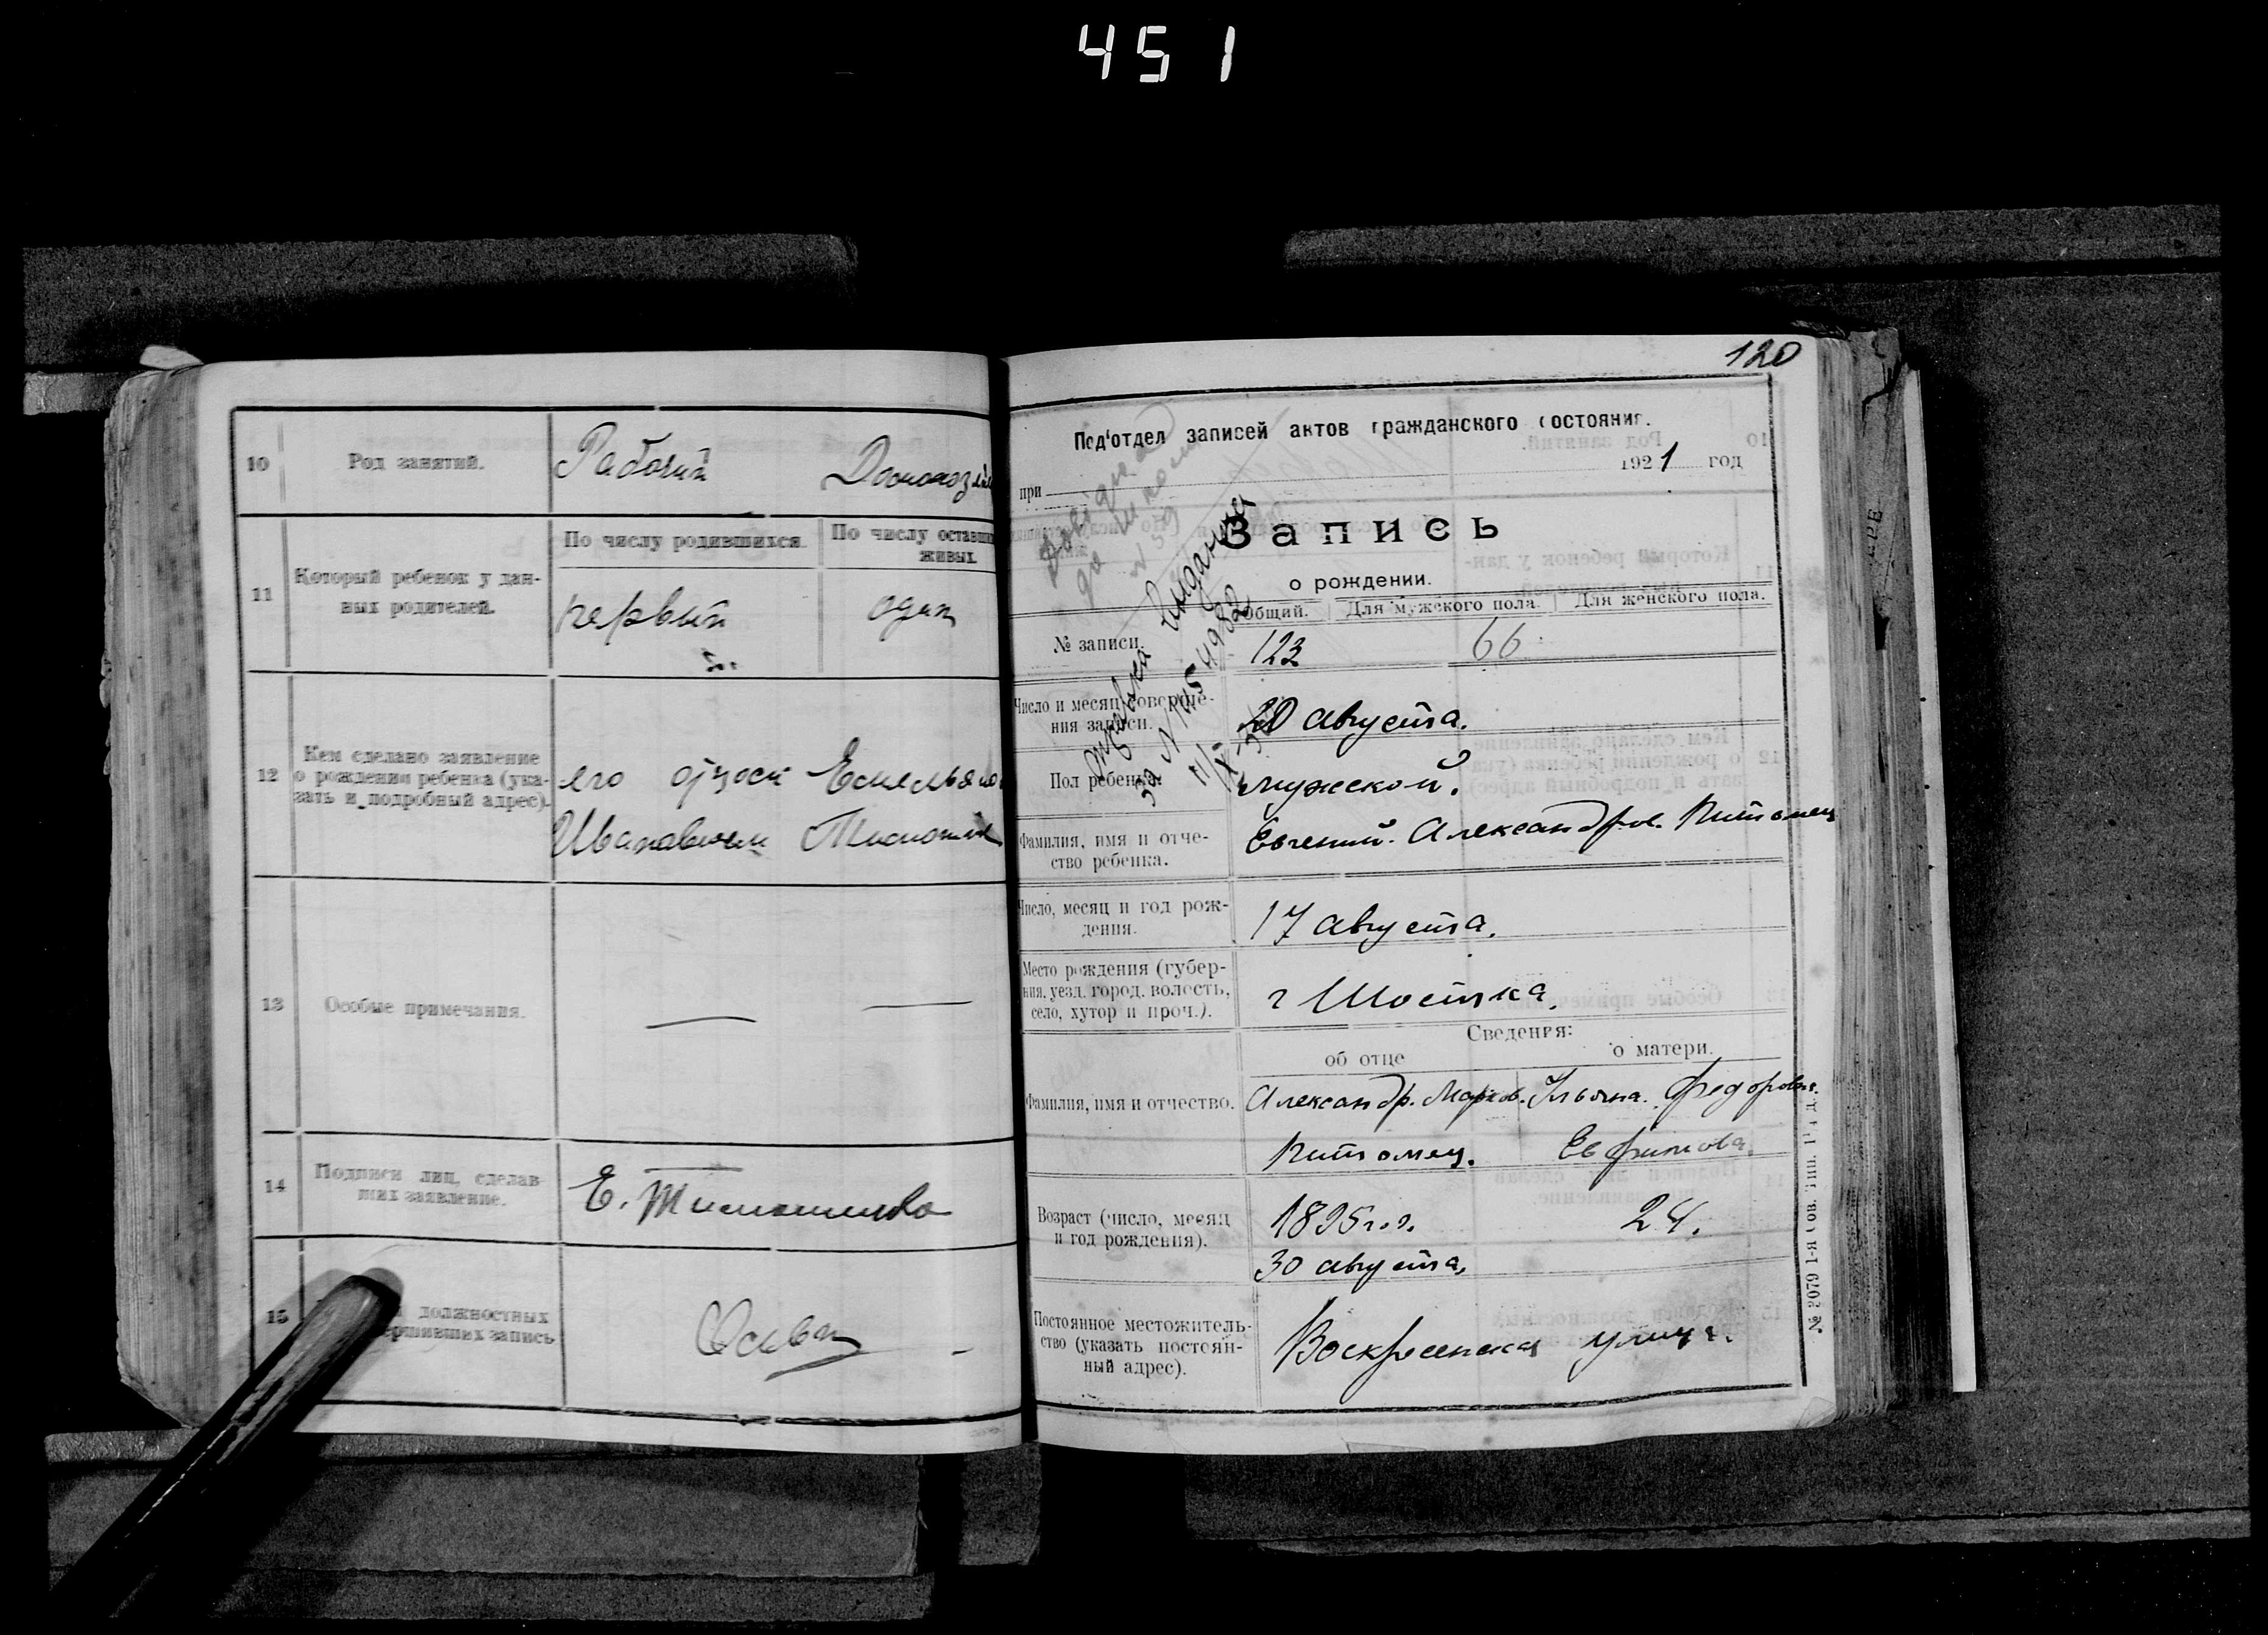 451
10 Род занятий. Рабочий Домохозяй
11 Который ребенок у дан-
ных родителей.
По числу родившихся По числу оставши
живых.
первый один
12 Кем сделано заявление
о рождении ребенка (ука-
зать и подробный адрес).
его отцом Емельяно
Ивановичем
13 Особые примечания. — —
14 Подписи лиц, сделав-
ших заявление.
Е.
15 должностных
ершивших запись
120
Под'отдел записей актов гражданского состояния.
при 1921 год
Запись
о рождении.
Общий. Для мужского пола. Для женского пола.
№ записи. 123 66
Число и месяц соверше-
ния записи. 20 августа.
Пол ребенка. мужской.
Фамилия, имя и отче-
ство ребенка. Евгений. Александров. Питомец
Число, месяц и год рож-
дения. 17 августа.
Место рождения (губер-
ния, уезд, город, волость,
село, хутор и проч.). г Шостка.
Сведения:
об отце о матери.
Фамилия, имя и отчество. Александр. Марков. Ульяна. Федоровна.
Питомец. Евфимова.
Возраст (число, месяц
и год рождения). 1895 г. 24.
30 августа.
Постоянное местожитель-
ство (указать постоян-
ный адрес). Воскресенская улица.
№ 2079 1-я Сов. тип.